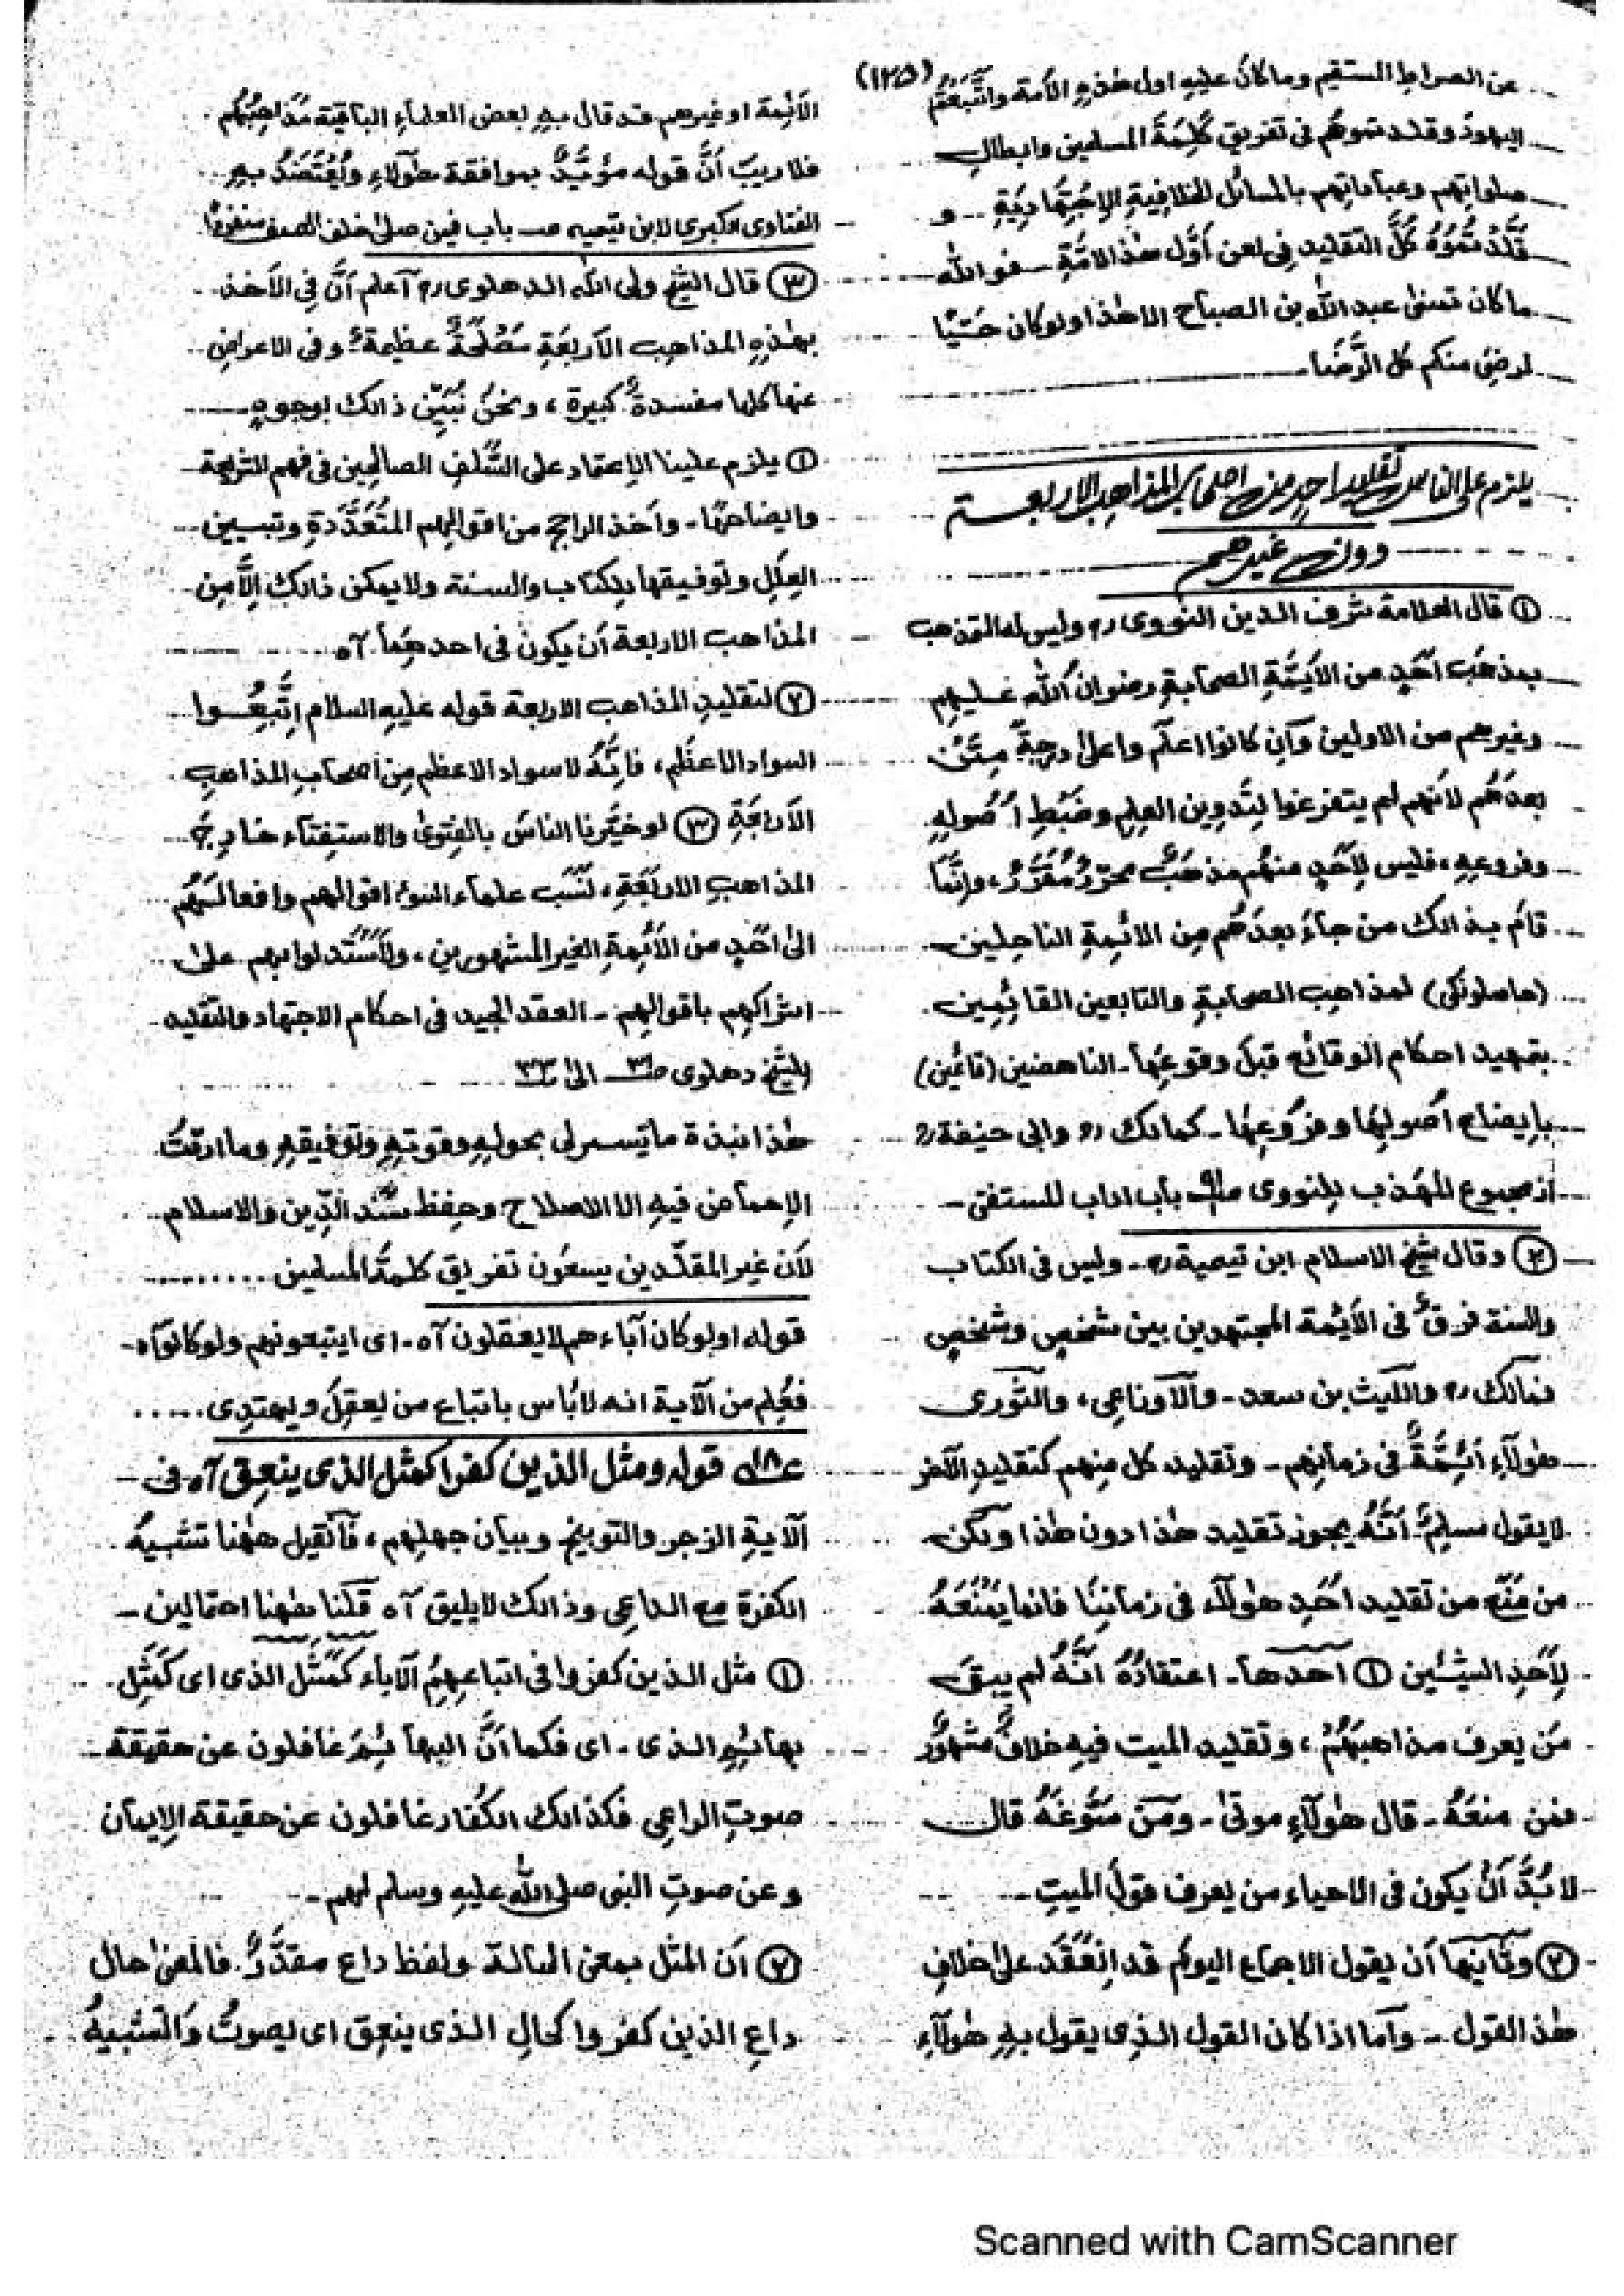 (١٢٥)
عن الصراط المستقيم وما كان عليه اول هٰذه الأمة واتَّبَعْتُم
اليهودَ وقلدتموهُم فى تفريق كَلِمَةِ المسلمين وابطالِ
صلواتِهم وعباداتِهم بالمسائل الخلافيةِ الاِجتهاديَّةِ و
قَلَّدْتُمُوهُ كُلَّ التقليد فى لعن أوَّل هٰذ الامَّةِ فوالله
ما كان تمنىٰ عبد اللّٰه بن الصباح الا هٰذا ولو كان حَيًّا
لرضِىَ منكم كل الرَّضَا
يلزم على الناس تقليد احدٍ من اصحاب المذاهب الاربعة
دون غيرهم
① قال العلامة شرف الدين النووى رح وليس له التمذهب
بمذهَب احَدٍ من الأئمَّةِ الصحابةِ رضوان اللّٰه عليهِم
وغيرهم من الاولين وَاِن كانوا اعلَم واعلىٰ درجةً مِمَّنْ
بعدَهُم لانَهم لم يتفرغوا لِتَدوِين العِلمِ وضَبْطِ اُصُولِهٖ
وفروعِهٖ، فليس لِاَحَدٍ منهُم مذهَبٌ محرّرٌ مُقَرَّرٌ، واِنَّما
قامَ بذالك من جاءَ بعدَهُم مِن الائِمةِ الناحِلين
لمذاهِب الصحابةِ والتابعين القائِمِين
بتمهيد احكام الوقائع قبلَ وقوعِها۔ الناهضين (قائمين)
بِايضاح اُصولِها وفرُوعِها۔ كمالك رح وابى حنيفة رح
از مجموع المهَذب للنووى ص باب اداب المستفتى۔
② وقال شيخ الاسلام ابن تيمية رح۔ وليس فى الكتاب
والسنة فرقٌ فى الأئِمة المجتهدين بين شخصٍ وشخصٍ
فمالك رح والليث بن سعد۔ والأوزاعِى، والثَّورى
هٰولآءِ اَئِمَّةٌ فى زمانِهم۔ وتقليد كل مِنهم كتقليدِ الآخر
لا يقول مسلِمٌ اَنَّهُ يجوز تقليد هٰذا دون هٰذا ولكن
من مَنَعَ من تقليد احَدِ هٰولآء فى زمانِنَا فانما يَمْنَعَهُ
لِاَحَدِ الشيئين ① احدها۔ اعتقادُهُ اَنَّهُ لم يبقَ
مَن يعرف مذاهبَهُمْ، وتقليد الميت فيهِ خلافٌ مشهورٌ
فمن منعَهُ۔ قال هٰولآءِ موتىٰ۔ ومَن سَوَّغَهُ قال
لا بُدَّ اَنْ يكون فى الاحياء من يعرف قولَ الميتِ۔
② وثانيها اَن يقول الاجماع اليوم قد اِنعَقَد علىٰ خلافِ
هٰذ القول۔ واَما اذا كان القول الذِى يقول بِهٖ هٰولآءِ
الائِمة او غيرهم قد قال بِهٖ بعض العلماءِ الباقية مَذاهِبُهُم
فلا ريبَ اَنَّ قوله مؤيَّدٌ بموافقة هٰولآءِ ويُعْتَضَدُ بهٖ
الفتاوى الكبرى لابن تيميه ص باب فيمن صلىٰ خلف الصف منفردًا
③ قال الشيخ ولى اللّٰه الدهلوى رح اعلم اَنَّ فى الاَخذ
بهٰذهِ المذاهِب الاَربَعَةِ مَصْلَحَةً عظيمةً وفى الاعراضِ
عنها كلها مفسدةً كبيرة، ونحنُ نُبَيّن ذالك بوجوهٍ
① يلزم علينا الاِعتماد على السَّلفِ الصالِحِين فى فهم الشريعة
وايضاحِهَا۔ واَخذ الراجح من اقوالِهم المتَعَدَّدةِ وتبيين
العِلَلِ وتوفيقها بالكتاب والسنة ولا يمكن ذالكَ اِلَّا مِن
المذاهب الاربعة اَن يكونَ فى احدهِما۔ اٰه
② لتقليدِ المذاهب الاربعة قوله عليهِ السلام اِتَّبِعُوا
السواد الاعظَم، فاِنَّهُ لا سواد الاعظم مِن اَصحابِ المذاهِبِ
الاَربَعَةِ ③ لو خيَّرنا الناسَ بالفتوىٰ والاستِفتاءِ خارِجَ
المذاهبِ الاربَعَةِ، لنَسَب علماءُ السُوءِ اقوالهم وافعالَهُم
الىٰ احَدٍ من الاَئِمةِ الغير المشهورين، ولَاسْتَدلوا بهم علىٰ
اشراكهِم باقوالِهم۔ العقد الجيد فى احكام الاجتهاد والتقليد
للشيخ دهلوى ص٣١ الىٰ ٣٣
هٰذا نبذة ما تيسر لى بحولِهٖ وقوتِهٖ وتوفيقِهٖ وما اردتُ
الاِحماض فيهِ الا الاصلاح وحِفظ سَنَد الدِّين والاسلام
لاَن غير المقلّدين يسعَون تفريق كلمةُ المسلمين
قوله اولو كان آباءهم لا يعقلون اٰه۔ اى ايتبعونهم ولو كانوا اٰه۔
فعُلِم من الآية انه لا بَاس باتباع من يَعقِلُ ويهتدِى
قوله ومثل الذين كفروا كمثل الذى ينعق اٰه فى
الآيةِ الزجر والتوبيخ وبيان جهلِهم، فاَن قيل هٰهنا تشبيهُ
الكفرة مع الداعِى وذالك لا يليق اٰه قُلنا هٰهنا احتمالين۔
① مثل الذين كفروا فى اتباعِهِمُ الآباء كَمَثَل الذى اى كَمَثِل
بهائِمِ الذى۔ اى فكما اَنَّ البهائِمَ غافلون عن حقيقة
صوتِ الراعِى فكذالك الكُفار غافلون عن حقيقة الاِيمان
وعن صوتِ النبى صلى اللّٰه عليهِ وسلم لهم۔
② اَن المثل بمعنى الحالة ولفظ داع مقدَّرٌ۔ فالمعنىٰ حال
داعِ الذين كفروا كحالِ الذى ينعِق اى يصوتُ والتشبيهُ
Scanned with CamScanner